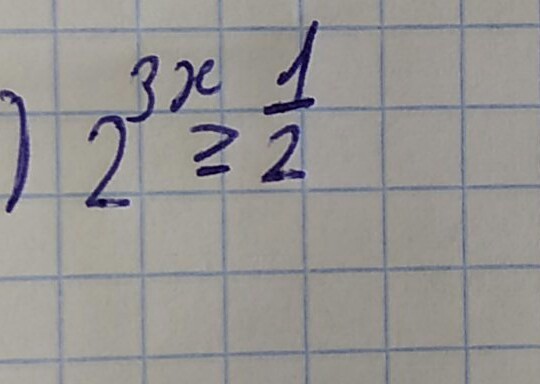 ) 2^{3x} ≥ \frac{1}{2}